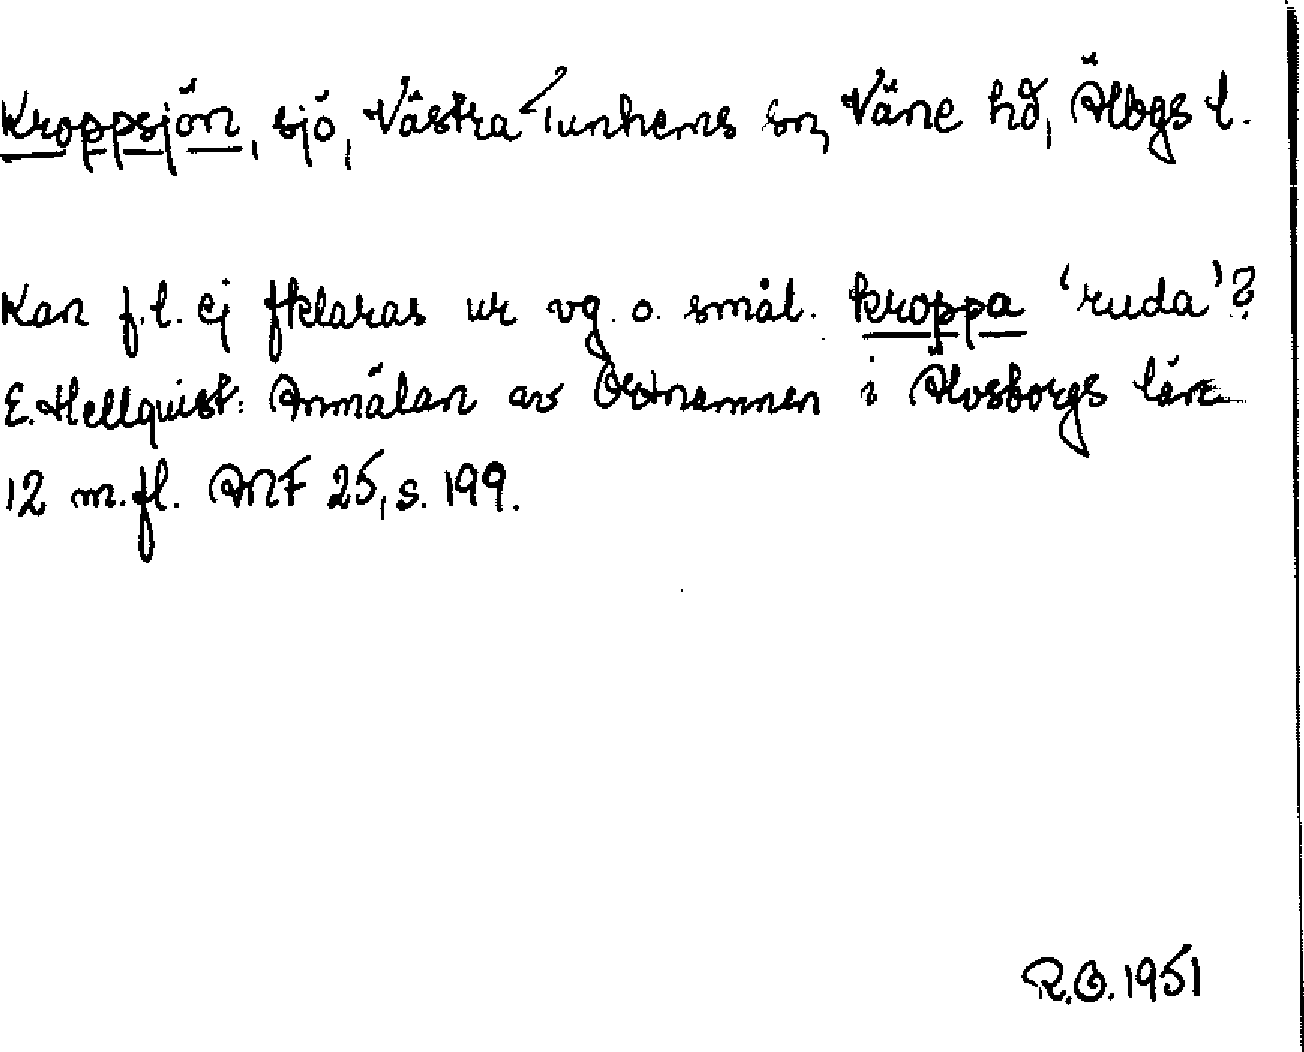 Kroppsjön, sjö, Västra Tunhems sn, Väne hd, Älvbgs l.
Kan f. l. ej fklaras ur vg. o. smål. kroppa 'ruda'?
E. Hellquist: Anmälan av Ortnamnen i Älvsborgs län
12 m.fl. ANF 25, s. 199.
R.O. 1951